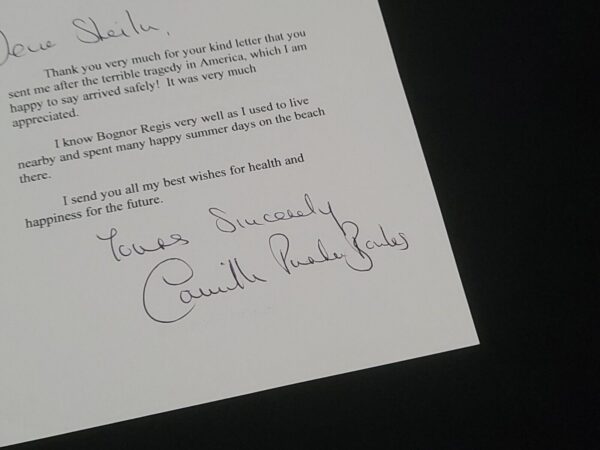 Dear Sheila,
Thank you very much for your kind letter that you
sent me after the terrible tragedy in America, which I am
happy to say arrived safely! It was very much
appreciated.
I know Bognor Regis very well as I used to live
nearby and spent many happy summer days on the beach
there.
I send you all my best wishes for health and
happiness for the future.
Yours Sincerely
Camilla Parker Bowles